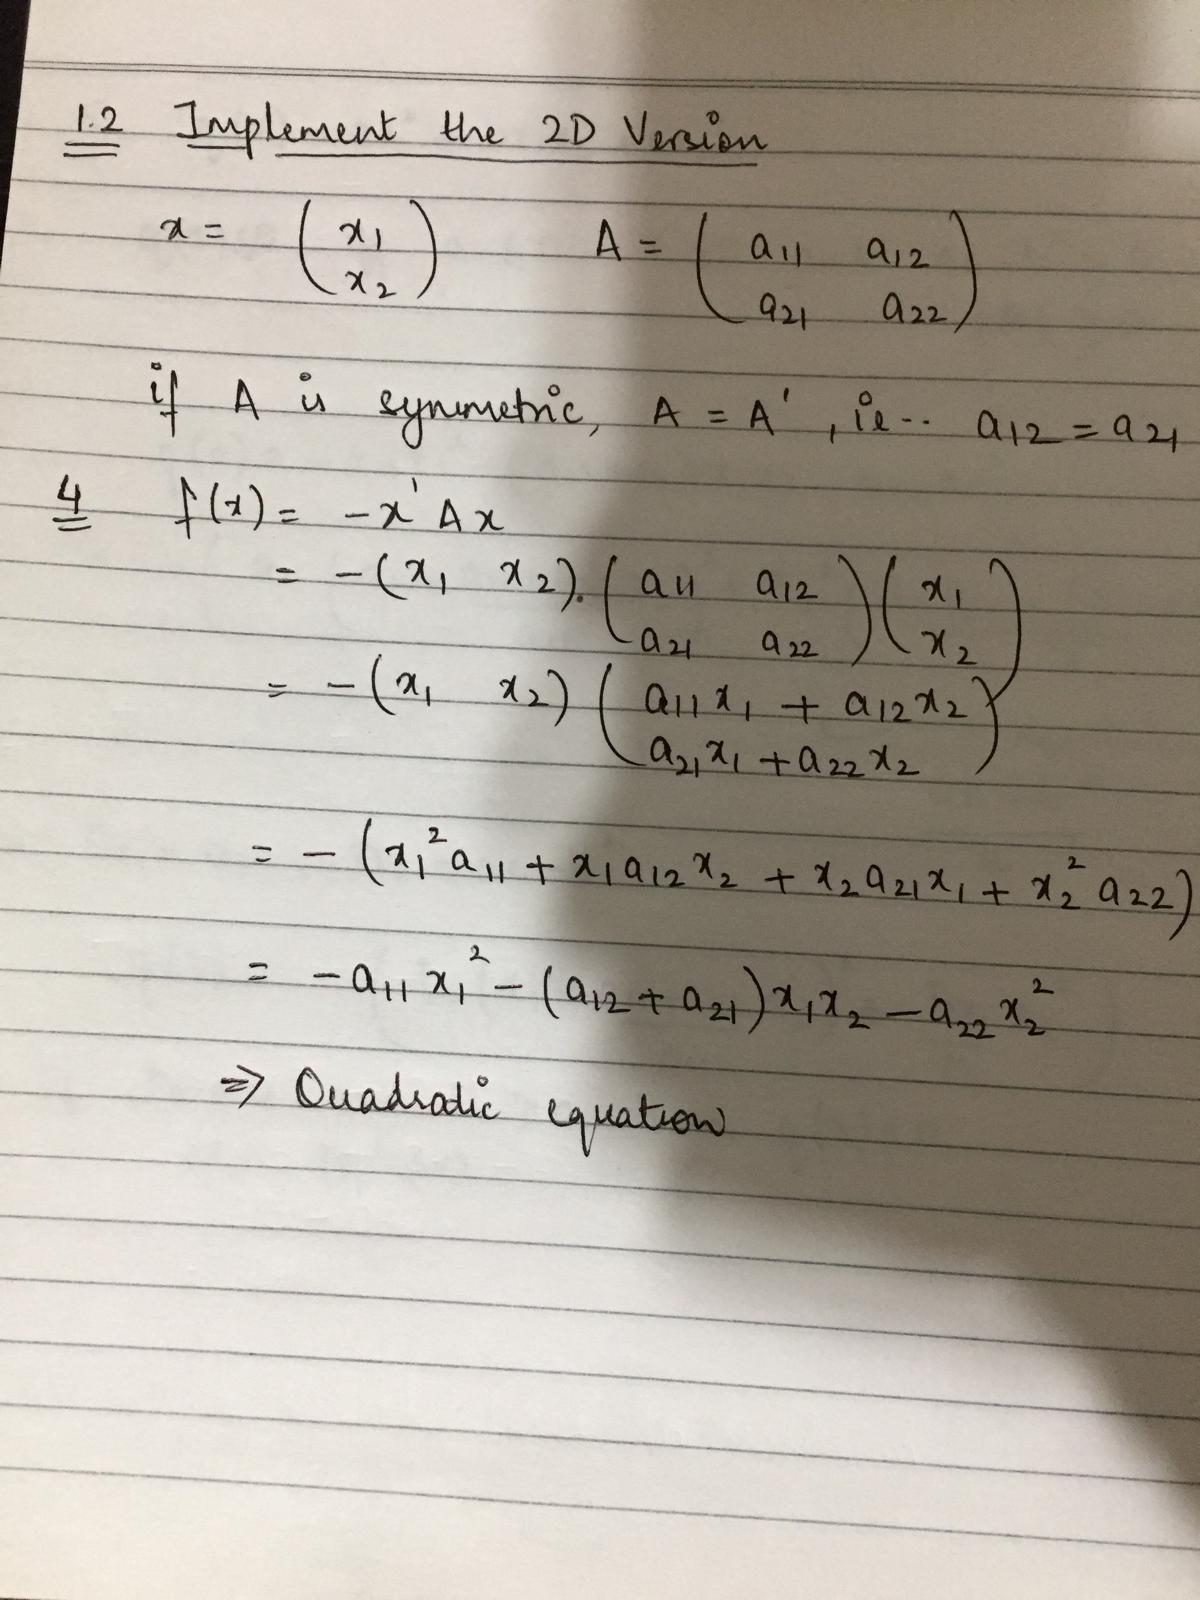 1.2 Implement the 2D Version
x = ( x₁ ) A = ( a₁₁ a₁₂ )
( x₂ ) ( a₂₁ a₂₂ )
if A is symmetric, A = A' , ie.. a₁₂ = a₂₁
4 f(x) = -x' A x
= -(x₁ x₂). ( a₁₁ a₁₂ ) ( x₁ )
( a₂₁ a₂₂ ) ( x₂ )
= -(x₁ x₂) ( a₁₁x₁ + a₁₂x₂ )
( a₂₁x₁ + a₂₂x₂ )
= - (x₁²a₁₁ + x₁a₁₂x₂ + x₂a₂₁x₁ + x₂²a₂₂)
= -a₁₁x₁² - (a₁₂ + a₂₁)x₁x₂ - a₂₂x₂²
⇒ Quadratic equation